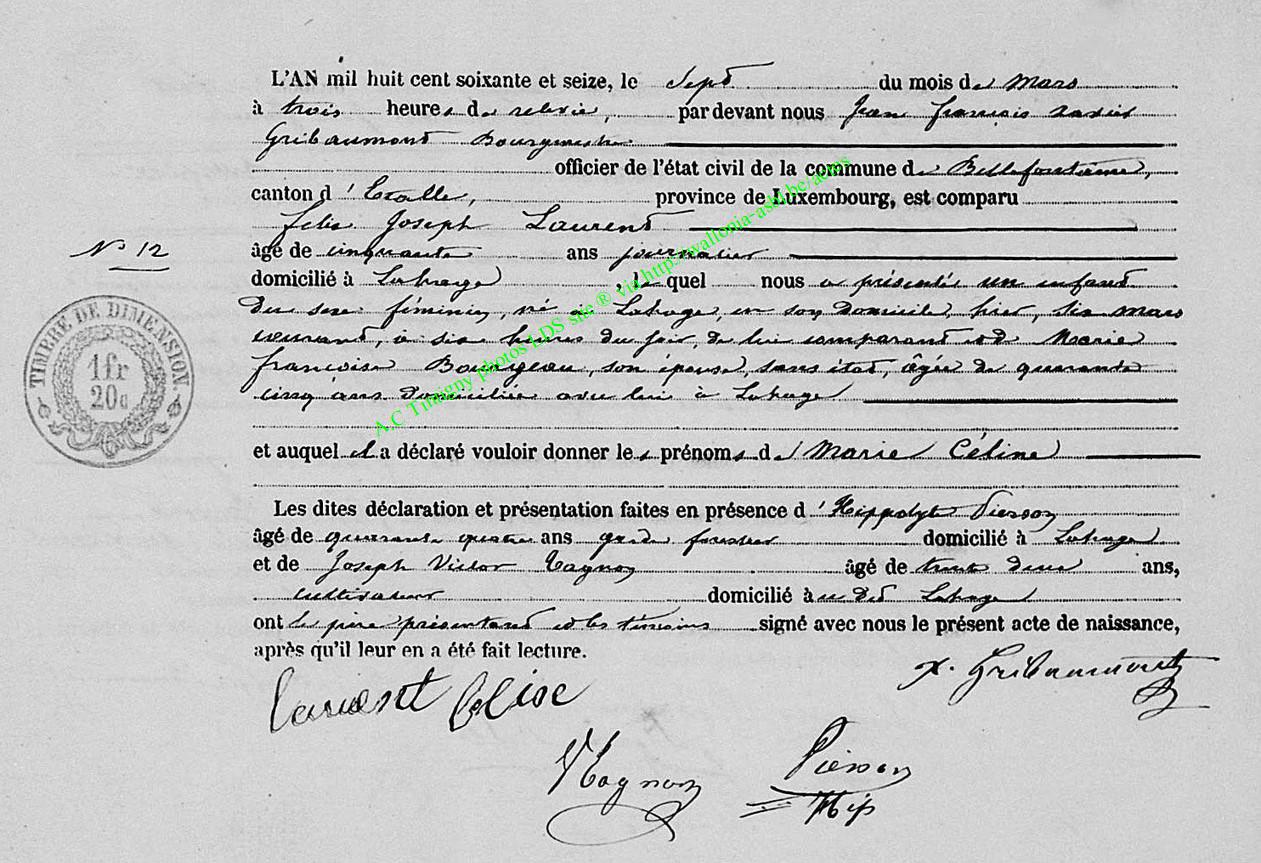 L'AN mil huit cent soixante et seize, le sept du mois de Mars
à trois heures de relevée, par devant nous Jean François Xavier
Gribaumont Bourgmestre
officier de l'état civil de la commune de Bellefontaine,
canton d'Etalle, province de Luxembourg, est comparu
Félix Joseph Laurent
N° 12
âgé de cinquante ans journalier
domicilié à Lahage, le quel nous a présenté un enfant
du sexe féminin, né à Lahage, en son domicile, hier, six mars
courant, à six heures du soir, de lui comparant et de Marie
françoise Bourgeau, son épouse, sans état, âgée de quarante
cinq ans domiciliée avec lui à Lahage
TIMBRE DE DIMENSION
1fr
20c
et auquel il a déclaré vouloir donner les prénoms de Marie Céline
Les dites déclaration et présentation faites en présence d'Hippolyte Pierson
âgé de quarante quatre ans garde forestier domicilié à Lahage
et de Joseph Victor Tagnon âgé de trente deux ans,
cultivateur domicilié à u dit Lahage
ont le père présentant et les témoins signé avec nous le présent acte de naissance,
après qu'il leur en a été fait lecture.
X. Gribaumont
Laurent Felixe
VTagnon
Pierson
Hip
A.C Tintigny photos LDS site ® via http://wallonia-asbl.be/actes